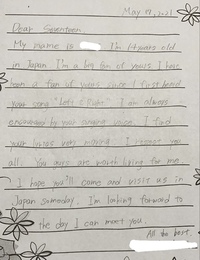 May 19, 2021
Dear Seventeen
My name is I'm 14 years old
in Japan. I'm a big fan of yours. I have
been a fan of yours since I first heard
your song "Left & Right". I am always
encouraged by your singing voice. I find
your lyrics very moving. I respect you
all. You guys are worth living for me.
I hope you'll come and visit us in
Japan someday. I'm looking forward to
the day I can meet you.
All the best,